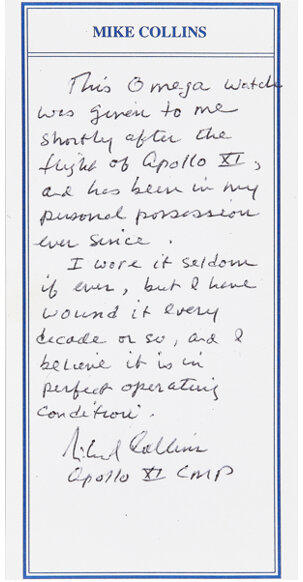 MIKE COLLINS
This Omega watch
was given to me
shortly after the
flight of Apollo XI,
and has been in my
personal possession
ever since.
I wore it seldom
if ever, but I have
wound it every
decade or so, and I
believe it is in
perfect operating
condition.
Michael Collins
Apollo XI CMP